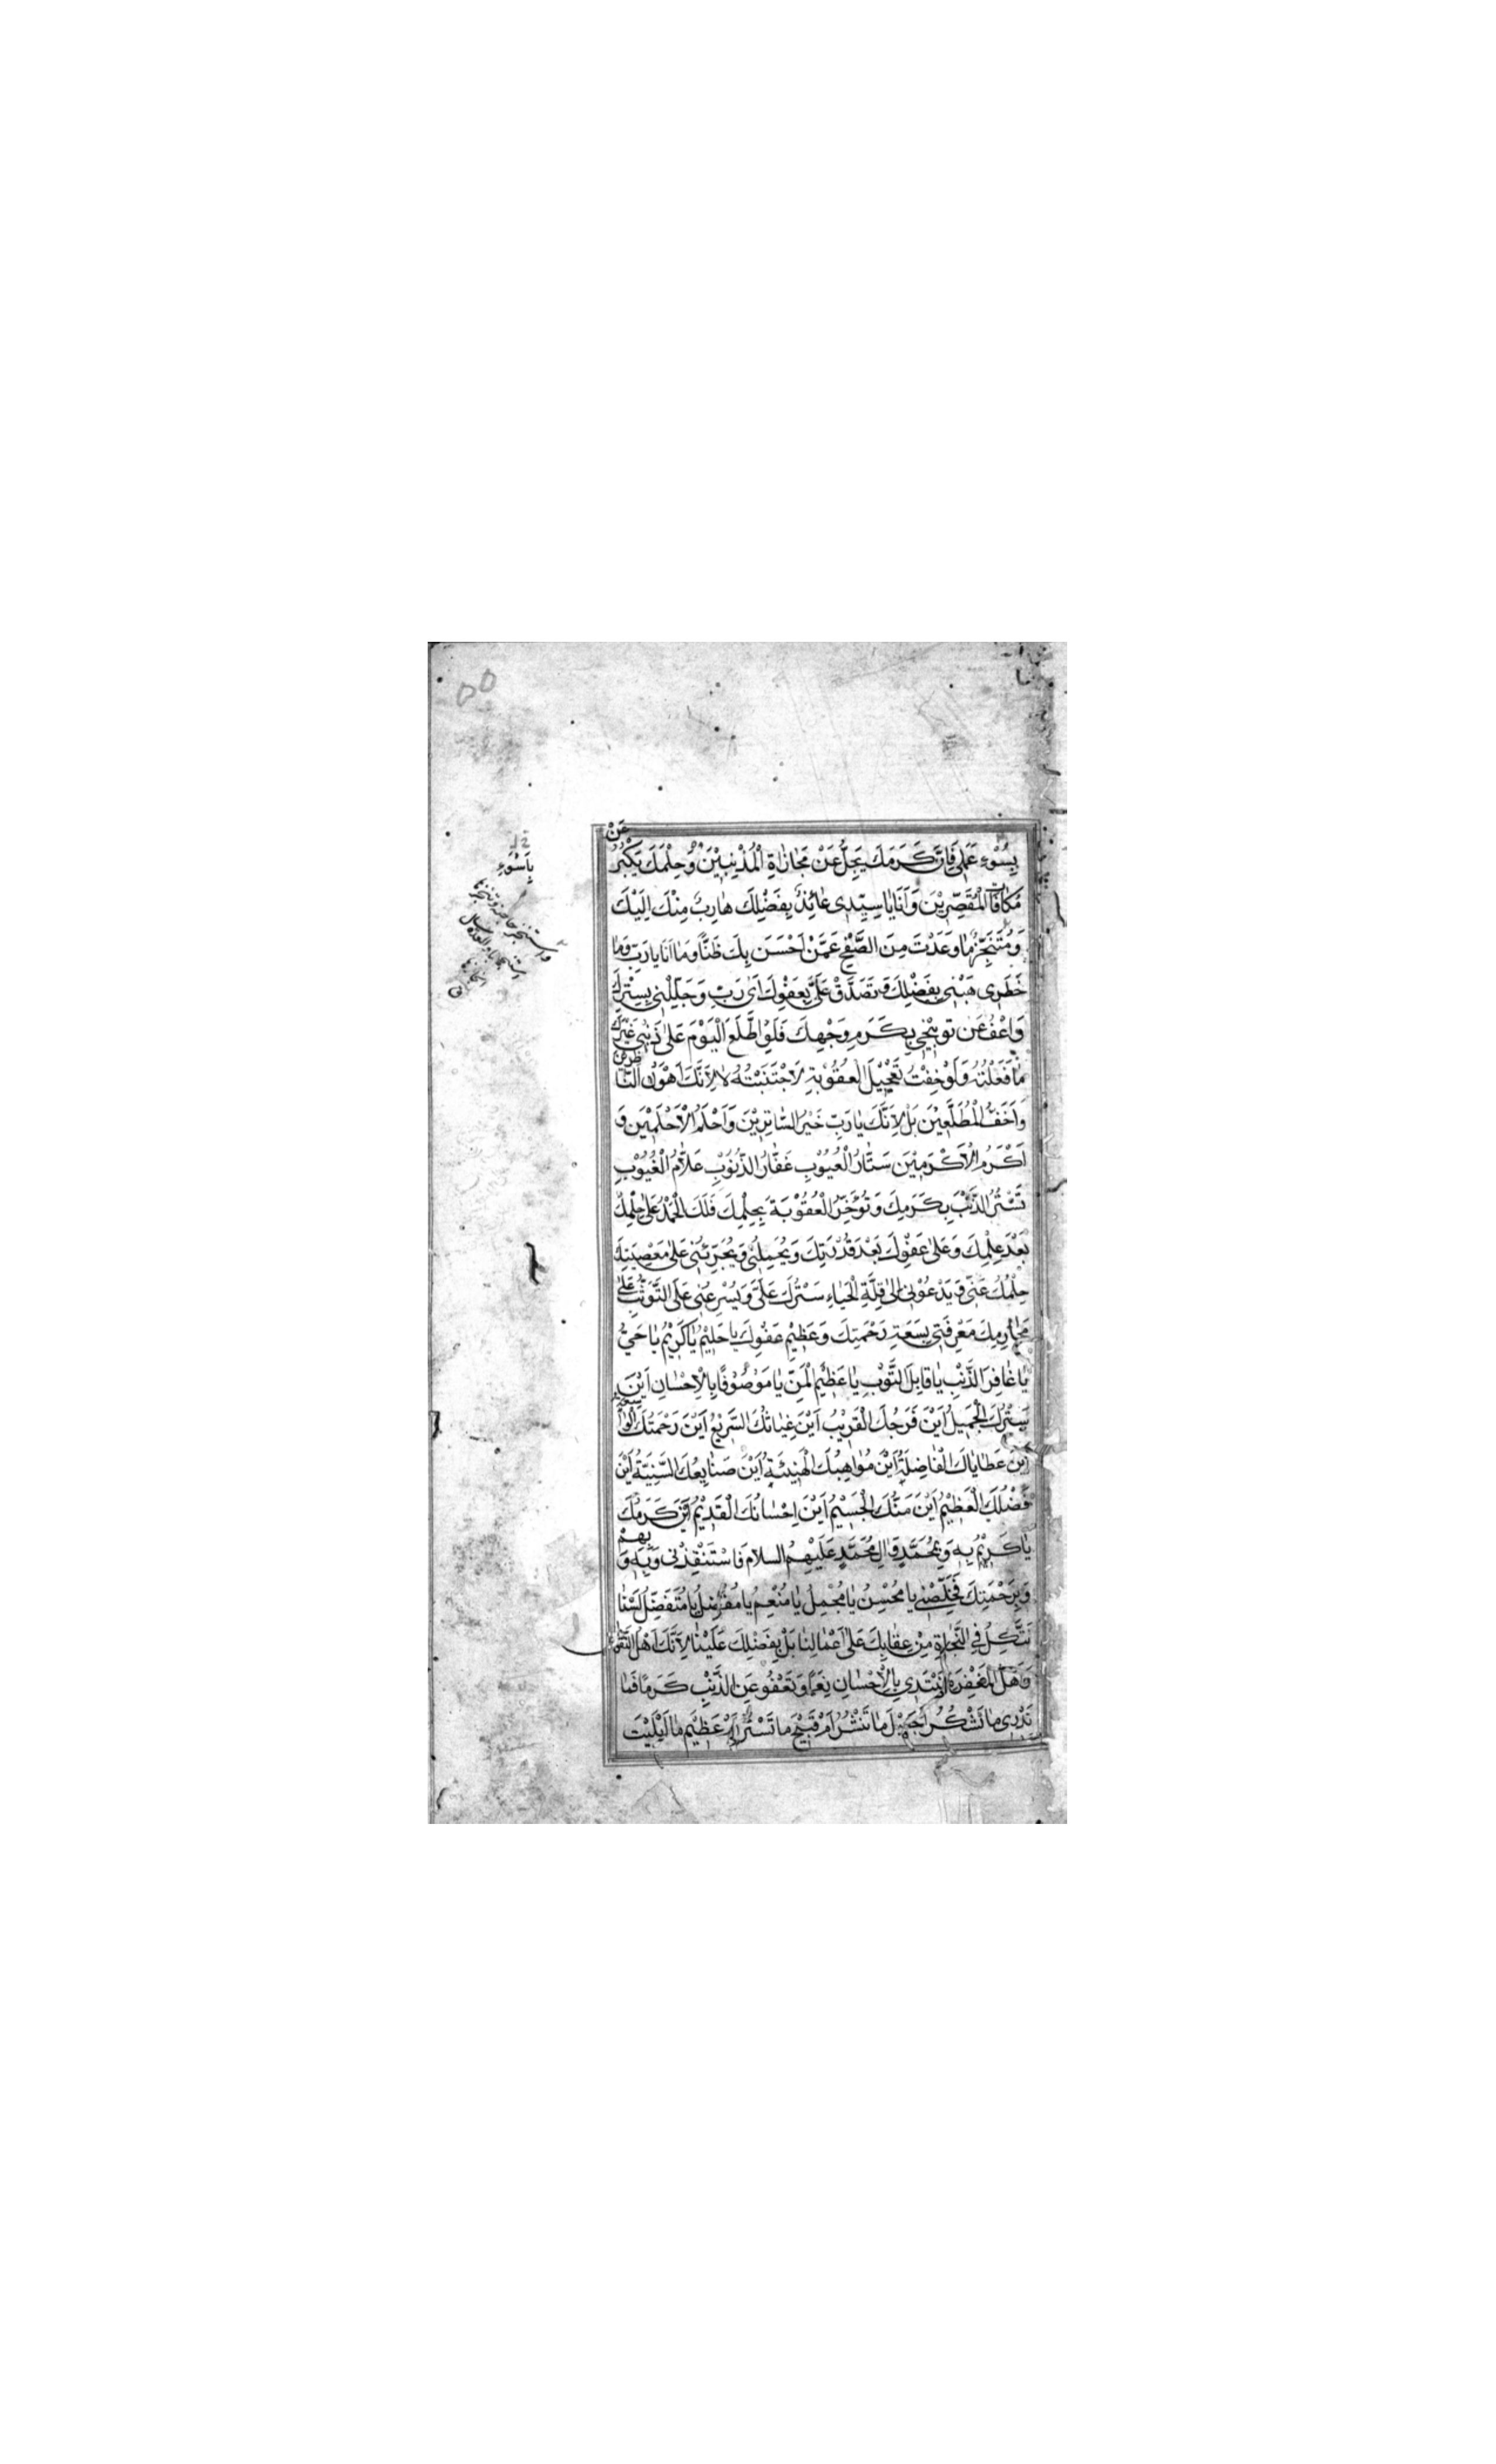 ۵۵
عَنْ
بِسُوْءِ عَمَلِی فَاِنَّ کَرَمَكَ یَجِلُّ عَنْ مَجَازَاةِ الْمُذْنِبِیْنَ وَحِلْمَكَ یَکْبُرُ
مُکَافَاتِ الْمُقَصِّرِیْنَ وَاَنَا یَا سَیِّدِی عَائِذٌ بِفَضْلِكَ هَارِبٌ مِنْكَ اِلَیْكَ
وَمُتَنَجِّزٌ مَا وَعَدْتَ مِنَ الصَّفْحِ عَمَّنْ اَحْسَنَ بِكَ ظَنًّا وَمَا اَنَا یَا رَبِّ وَمَا
خَطَرِی هَبْنِی بِفَضْلِكَ وَتَصَدَّقْ عَلَیَّ بِعَفْوِكَ اَیْ رَبِّ وَجَلِّلْنِی بِسِتْرِكَ
وَاعْفُ عَنْ تَوْبِیْخِی بِکَرَمِ وَجْهِكَ فَلَوِ اطَّلَعَ الْیَوْمَ عَلٰی ذَنْبِی غَیْرُكَ
مَا فَعَلْتُهُ وَلَوْ خِفْتُ تَعْجِیْلَ الْعُقُوْبَةِ لَاجْتَنَبْتُهُ لَا لِاَنَّكَ اَهْوَنُ النَّاظِرِیْنَ
وَاَخَفُّ الْمُطَّلِعِیْنَ بَلْ لِاَنَّكَ یَا رَبِّ خَیْرُ السَّاتِرِیْنَ وَاَحْلَمُ الْاَحْلَمِیْنَ وَ
اَکْرَمُ الْاَکْرَمِیْنَ سَتَّارُ الْعُیُوْبِ غَفَّارُ الذُّنُوْبِ عَلَّامُ الْغُیُوْبِ
تَسْتُرُ الذَّنْبَ بِکَرَمِكَ وَتُؤَخِّرُ الْعُقُوْبَةَ بِحِلْمِكَ فَلَكَ الْحَمْدُ عَلٰی حِلْمِكَ
بَعْدَ عِلْمِكَ وَعَلٰی عَفْوِكَ بَعْدَ قُدْرَتِكَ وَیَحْمِلُنِی وَیُجَرِّئُنِی عَلٰی مَعْصِیَتِكَ
حِلْمُكَ عَنِّی وَیَدْعُوْنِی اِلٰی قِلَّةِ الْحَیَاءِ سَتْرُكَ عَلَیَّ وَیُسْرِعُنِی عَلَی التَّوَثُّبِ عَلٰی
مَحَارِمِكَ مَعْرِفَتِی بِسَعَةِ رَحْمَتِكَ وَعَظِیْمِ عَفْوِكَ یَا حَلِیْمُ یَا کَرِیْمُ یَا حَیُّ
یَا غَافِرَ الذَّنْبِ یَا قَابِلَ التَّوْبِ یَا عَظِیْمَ الْمَنِّ یَا مَوْصُوْفًا بِالْاِحْسَانِ اَیْنَ
سِتْرُكَ الْجَمِیْلُ اَیْنَ فَرَجُكَ الْقَرِیْبُ اَیْنَ غِیَاثُكَ السَّرِیْعُ اَیْنَ رَحْمَتُكَ الْوَاسِعَةُ
اَیْنَ عَطَایَاكَ الْفَاضِلَةُ اَیْنَ مَوَاهِبُكَ الْهَنِیْئَةُ اَیْنَ صَنَایِعُكَ السَّنِیَّةُ اَیْنَ
فَضْلُكَ الْعَظِیْمُ اَیْنَ مَنُّكَ الْجَسِیْمُ اَیْنَ اِحْسَانُكَ الْقَدِیْمُ اَیْنَ کَرَمُكَ
یَا کَرِیْمُ بِهِ وَبِمُحَمَّدٍ وَاٰلِ مُحَمَّدٍ عَلَیْهِمُ السلام فَاسْتَنْقِذْنِی وَبِهِ وَبِهِمْ
وَبِرَحْمَتِكَ فَخَلِّصْنِی یَا مُحْسِنُ یَا مُجْمِلُ یَا مُنْعِمُ یَا مُفْضِلُ یَا مُتَفَضِّلُ لَسْنَا
نَتَّکِلُ فِی النَّجَاةِ مِنْ عِقَابِكَ عَلٰی اَعْمَالِنَا بَلْ بِفَضْلِكَ عَلَیْنَا لِاَنَّكَ اَهْلُ التَّقْوٰی
وَاَهْلُ الْمَغْفِرَةِ تَبْتَدِی بِالْاِحْسَانِ نِعَمًا وَتَعْفُو عَنِ الذَّنْبِ کَرَمًا فَمَا
نَدْرِی مَا نَشْکُرُ اَجَمِیْلَ مَا تَنْشُرُ اَمْ قَبِیْحَ مَا تَسْتُرُ اَمْ عَظِیْمَ مَا اَبْلَیْتَ
بِاَسْوَءِ